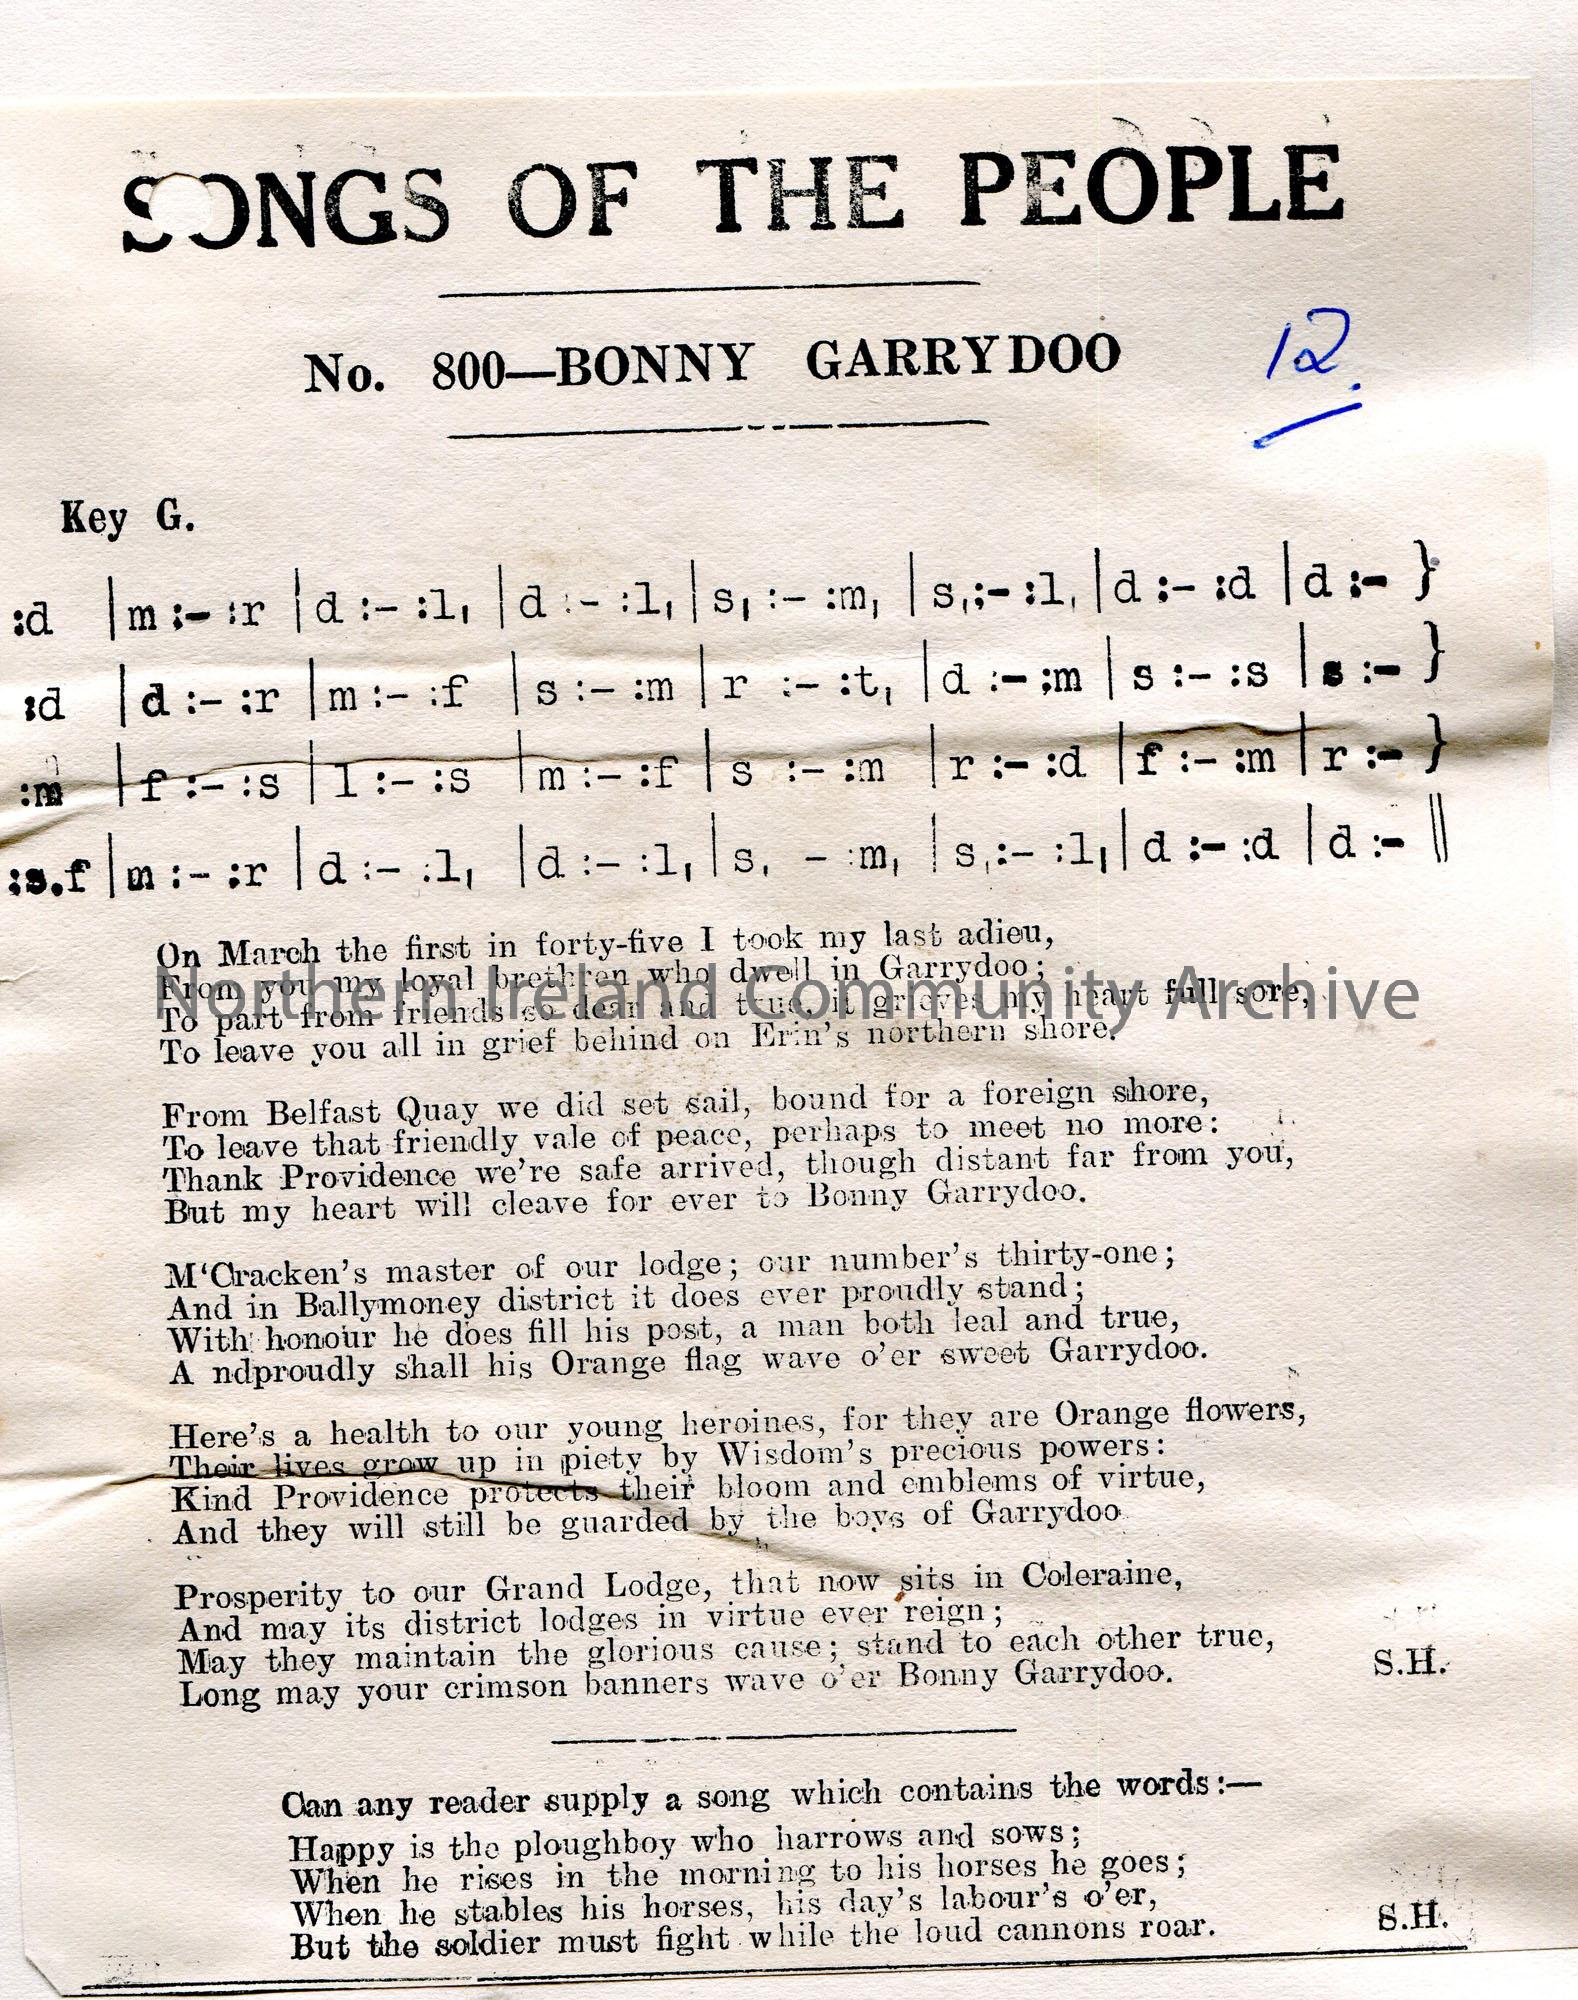 SONGS OF THE PEOPLE
No. 800—BONNY GARRYDOO
12.
Key G.
:d |m :- :r |d :- :l, |d :- :l, |s, :- :m, |s, :- :l, |d :- :d |d :- }
:d |d :- :r |m :- :f |s :- :m |r :- :t, |d :- :m |s :- :s |s :- }
:m |f :- :s |l :- :s |m :- :f |s :- :m |r :- :d |f :- :m |r :- }
:s.f |m :- :r |d :- :l, |d :- :l, |s, - :m, |s, :- :l, |d :- :d |d :- ||
On March the first in forty-five I took my last adieu,
From you my loyal brethren who dwell in Garrydoo;
To part from friends so dear and true, it grieves my heart full sore,
To leave you all in grief behind on Erin's northern shore.
Northern Ireland Community Archive
From Belfast Quay we did set sail, bound for a foreign shore,
To leave that friendly vale of peace, perhaps to meet no more:
Thank Providence we're safe arrived, though distant far from you,
But my heart will cleave for ever to Bonny Garrydoo.
M'Cracken's master of our lodge; our number's thirty-one;
And in Ballymoney district it does ever proudly stand;
With honour he does fill his post, a man both leal and true,
A ndproudly shall his Orange flag wave o'er sweet Garrydoo.
Here's a health to our young heroines, for they are Orange flowers,
Their lives grow up in piety by Wisdom's precious powers:
Kind Providence protects their bloom and emblems of virtue,
And they will still be guarded by the boys of Garrydoo
Prosperity to our Grand Lodge, that now sits in Coleraine,
And may its district lodges in virtue ever reign;
May they maintain the glorious cause; stand to each other true,
Long may your crimson banners wave o'er Bonny Garrydoo.
S.H.
Can any reader supply a song which contains the words:—
Happy is the ploughboy who harrows and sows;
When he rises in the morning to his horses he goes;
When he stables his horses, his day's labour's o'er,
But the soldier must fight while the loud cannons roar.
S.H.